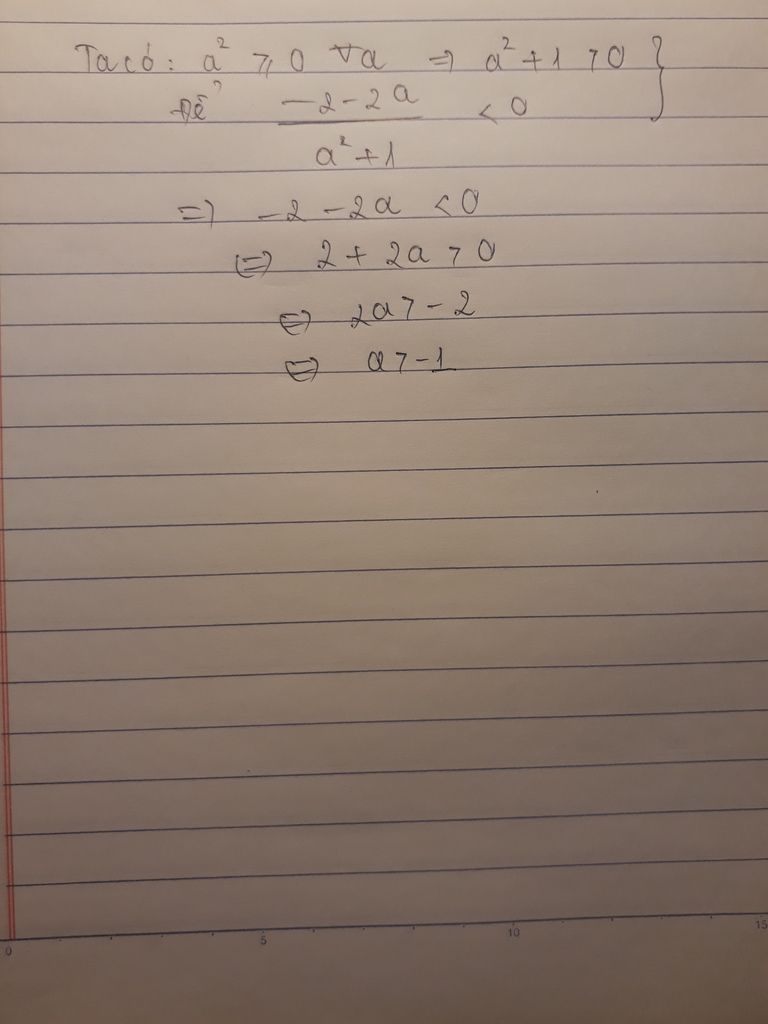 Ta có: a² ⩾ 0 ∀a ⇒ a² + 1 > 0 }
Để (-2 - 2a)/(a² + 1) < 0
⇒ -2 - 2a < 0
⇔ 2 + 2a > 0
⇔ 2a > -2
⇔ a > -1
0 5 10 15